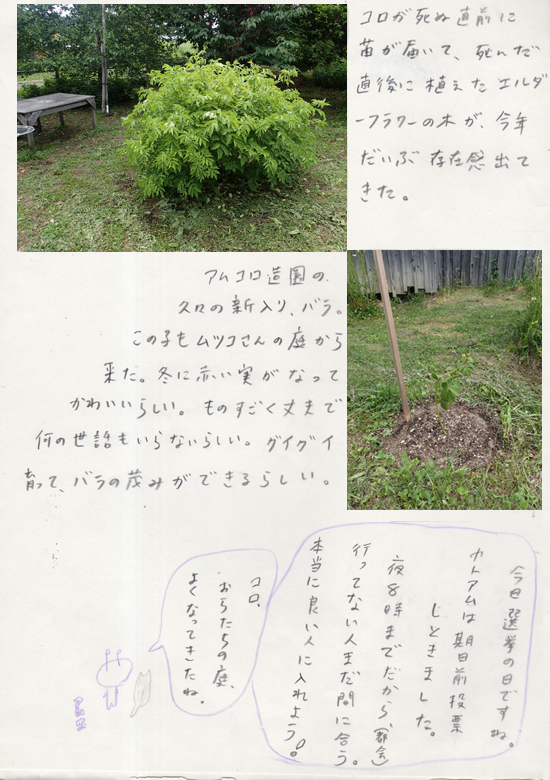 コロが死ぬ直前に
苗が届いて、死んだ
直後に植えたエルダ
ーフラワーの木が、今年
だいぶ存在感出て
きた。
アムコロ造園の、
久々の新入り、バラ。
この子もムツコさんの庭から
来た。冬に赤い実がなって
かわいいらしい。ものすごく丈夫で
何の世話もいらないらしい。グイグイ
育って、バラの茂みができるらしい。
今日選挙の日ですね。
カトアムは期日前投票
しときました。
夜8時までだから、(都会)
行ってない人まだ間に合う。
本当に良い人に入れよう。
コロ、
おらたちの庭、
よくなってきたね。